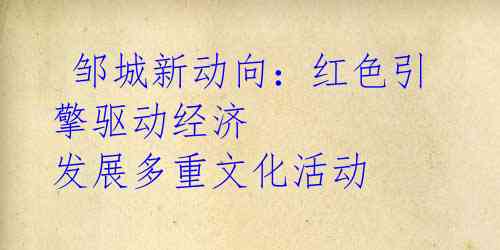 邹城新动向：红色引
擎驱动经济
发展多重文化活动